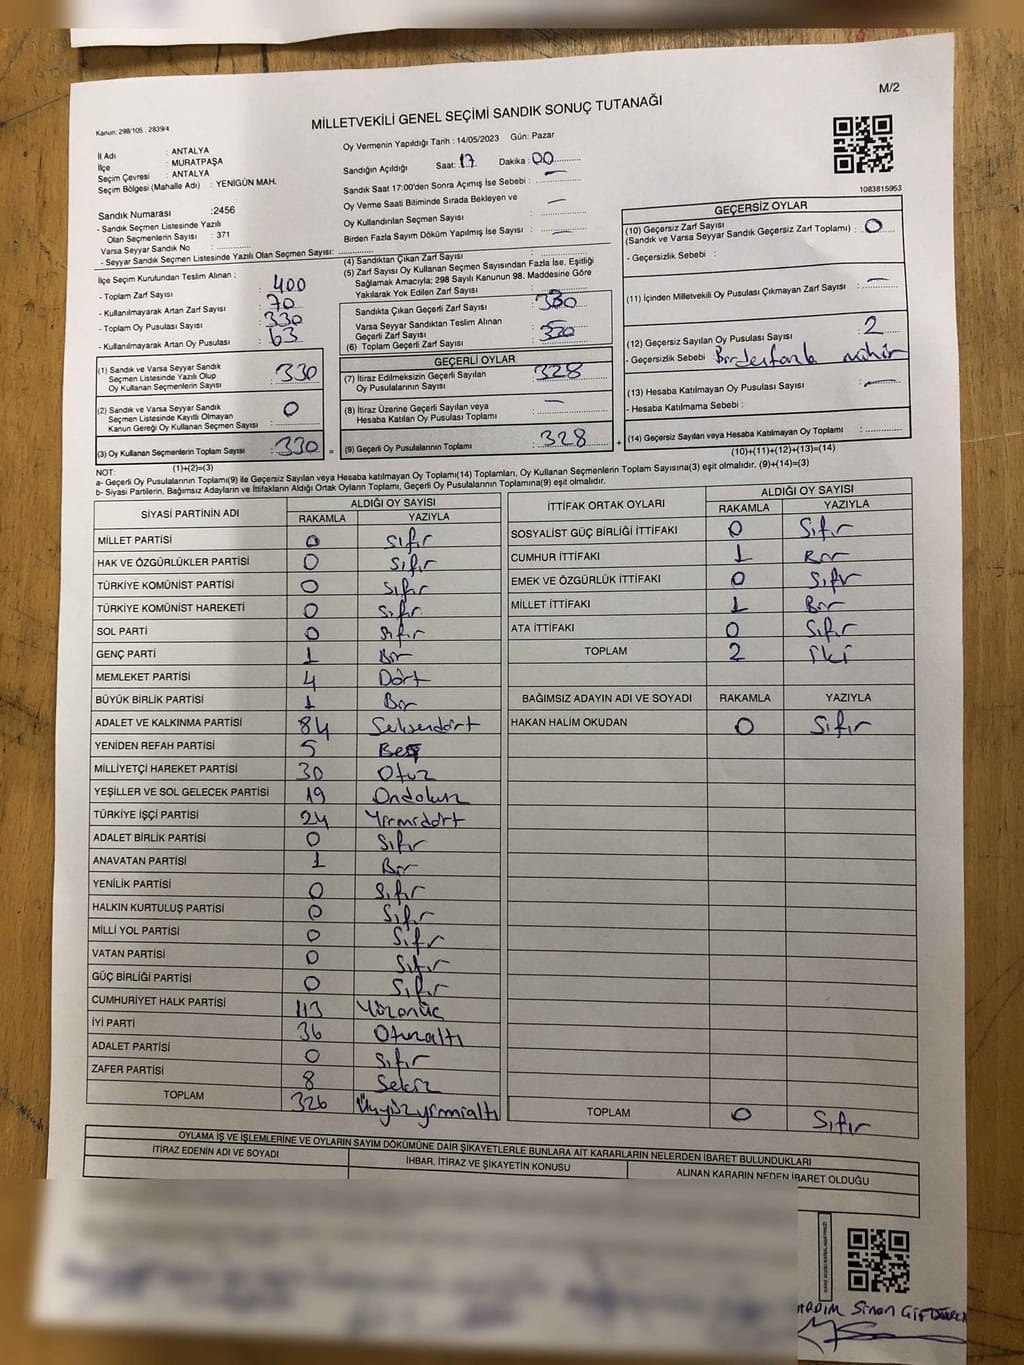 M/2
MİLLETVEKİLİ GENEL SEÇİMİ SANDIK SONUÇ TUTANAĞI
Kanun, 298/105 , 2839/4
İl Adı : ANTALYA
İlçe : MURATPAŞA
Seçim Çevresi : ANTALYA
Seçim Bölgesi (Mahalle Adı) : YENİGÜN MAH.
Sandık Numarası :2456
- Sandık Seçmen Listesinde Yazılı
Olan Seçmenlerin Sayısı : 371
Varsa Seyyar Sandık No :
- Seyyar Sandık Seçmen Listesinde Yazılı Olan Seçmen Sayısı:
Oy Vermenin Yapıldığı Tarih : 14/05/2023 Gün: Pazar
Sandığın Açıldığı Saat: 17 Dakika : 00
Sandık Saat 17:00'den Sonra Açılmış İse Sebebi :
Oy Verme Saati Bitiminde Sırada Bekleyen ve
Oy Kullandırılan Seçmen Sayısı : —
Birden Fazla Sayım Döküm Yapılmış İse Sayısı : —
1083815953
İlçe Seçim Kurulundan Teslim Alınan :
- Toplam Zarf Sayısı : 400
- Kullanılmayarak Artan Zarf Sayısı : 70
- Toplam Oy Pusulası Sayısı : 330
- Kullanılmayarak Artan Oy Pusulası : 63
(1) Sandık ve Varsa Seyyar Sandık
Seçmen Listesinde Yazılı Olup
Oy Kullanan Seçmenlerin Sayısı : 330
(2) Sandık ve Varsa Seyyar Sandık
Seçmen Listesinde Kayıtlı Olmayan
Kanun Gereği Oy Kullanan Seçmen Sayısı : 0
(3) Oy Kullanan Seçmenlerin Toplam Sayısı : 330 =
(1)+(2)=(3)
(4) Sandıktan Çıkan Zarf Sayısı :
(5) Zarf Sayısı Oy Kullanan Seçmen Sayısından Fazla İse, Eşitliği
Sağlamak Amacıyla; 298 Sayılı Kanunun 98. Maddesine Göre
Yakılarak Yok Edilen Zarf Sayısı :
Sandıkta Çıkan Geçerli Zarf Sayısı : 330
Varsa Seyyar Sandıktan Teslim Alınan
Geçerli Zarf Sayısı : —
(6) Toplam Geçerli Zarf Sayısı : 330
GEÇERLİ OYLAR
(7) İtiraz Edilmeksizin Geçerli Sayılan
Oy Pusulalarının Sayısı : 328
(8) İtiraz Üzerine Geçerli Sayılan veya
Hesaba Katılan Oy Pusulası Toplamı : —
(9) Geçerli Oy Pusulalarının Toplamı : 328 +
GEÇERSİZ OYLAR
(10) Geçersiz Zarf Sayısı
(Sandık ve Varsa Seyyar Sandık Geçersiz Zarf Toplamı) : 0
- Geçersizlik Sebebi :
(11) İçinden Milletvekili Oy Pusulası Çıkmayan Zarf Sayısı : —
(12) Geçersiz Sayılan Oy Pusulası Sayısı : 2
- Geçersizlik Sebebi :
(13) Hesaba Katılmayan Oy Pusulası Sayısı : —
- Hesaba Katılmama Sebebi :
(14) Geçersiz Sayılan veya Hesaba Katılmayan Oy Toplamı :
(10)+(11)+(12)+(13)=(14)
NOT:
a- Geçerli Oy Pusulaları Toplamı(9) ile Geçersiz Sayılan veya Hesaba katılmayan Oy Toplamı(14) Toplamları, Oy Kullanan Seçmenlerin Toplam Sayısına(3) eşit olmalıdır. (9)+(14)=(3)
b- Siyasi Partilerin, Bağımsız Adayların ve İttifakların Aldığı Ortak Oyların Toplamı, Geçerli Oy Pusulalarının Toplamına(9) eşit olmalıdır.
SİYASİ PARTİNİN ADI ALDIĞI OY SAYISI
RAKAMLA YAZIYLA
MİLLET PARTİSİ 0 sıfır
HAK VE ÖZGÜRLÜKLER PARTİSİ 0 sıfır
TÜRKİYE KOMÜNİST PARTİSİ 0 sıfır
TÜRKİYE KOMÜNİST HAREKETİ 0 sıfır
SOL PARTİ 0 sıfır
GENÇ PARTİ 1 Bir
MEMLEKET PARTİSİ 4 Dört
BÜYÜK BİRLİK PARTİSİ 1 Bir
ADALET VE KALKINMA PARTİSİ 84 Seksendört
YENİDEN REFAH PARTİSİ 5 Beş
MİLLİYETÇİ HAREKET PARTİSİ 30 Otuz
YEŞİLLER VE SOL GELECEK PARTİSİ 19 Ondokuz
TÜRKİYE İŞÇİ PARTİSİ 24 Yirmidört
ADALET BİRLİK PARTİSİ 0 Sıfır
ANAVATAN PARTİSİ 1 Bir
YENİLİK PARTİSİ 0 Sıfır
HALKIN KURTULUŞ PARTİSİ 0 Sıfır
MİLLİ YOL PARTİSİ 0 Sıfır
VATAN PARTİSİ 0 Sıfır
GÜÇ BİRLİĞİ PARTİSİ 0 Sıfır
CUMHURİYET HALK PARTİSİ 113 Yüzonüç
İYİ PARTİ 36 Otuzaltı
ADALET PARTİSİ 0 sıfır
ZAFER PARTİSİ 8 Sekiz
TOPLAM 326 Üçyüzyirmialtı
İTTİFAK ORTAK OYLARI ALDIĞI OY SAYISI
RAKAMLA YAZIYLA
SOSYALİST GÜÇ BİRLİĞİ İTTİFAKI 0 Sıfır
CUMHUR İTTİFAKI 1 Bir
EMEK VE ÖZGÜRLÜK İTTİFAKI 0 Sıfır
MİLLET İTTİFAKI 1 Bir
ATA İTTİFAKI 0 Sıfır
TOPLAM 2 İki
BAĞIMSIZ ADAYIN ADI VE SOYADI RAKAMLA YAZIYLA
HAKAN HALİM OKUDAN 0 Sıfır
TOPLAM 0 Sıfır
OYLAMA İŞ VE İŞLEMLERİNE VE OYLARIN SAYIM DÖKÜMÜNE DAİR ŞİKAYETLERLE BUNLARA AİT KARARLARIN NELERDEN İBARET BULUNDUKLARI
İTİRAZ EDENİN ADI VE SOYADI İHBAR, İTİRAZ VE ŞİKAYETİN KONUSU ALINAN KARARIN NEDEN İBARET OLDUĞU
Sinan